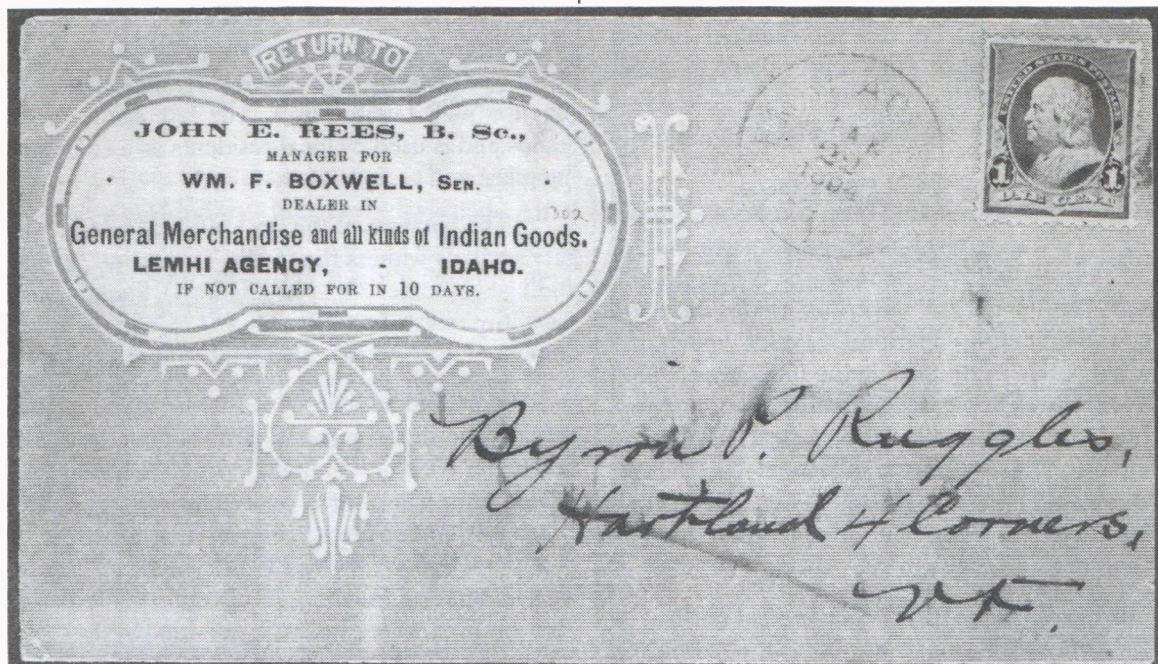 RETURN TO
JOHN E. REES, B. Sc.,
MANAGER FOR
WM. F. BOXWELL, SEN.
DEALER IN
302
General Merchandise and all kinds of Indian Goods.
LEMHI AGENCY, - IDAHO.
IF NOT CALLED FOR IN 10 DAYS.
UNITED STATES POSTAGE
1 1
Byron P. Ruggles,
Hartland 4 Corners,
Vt.